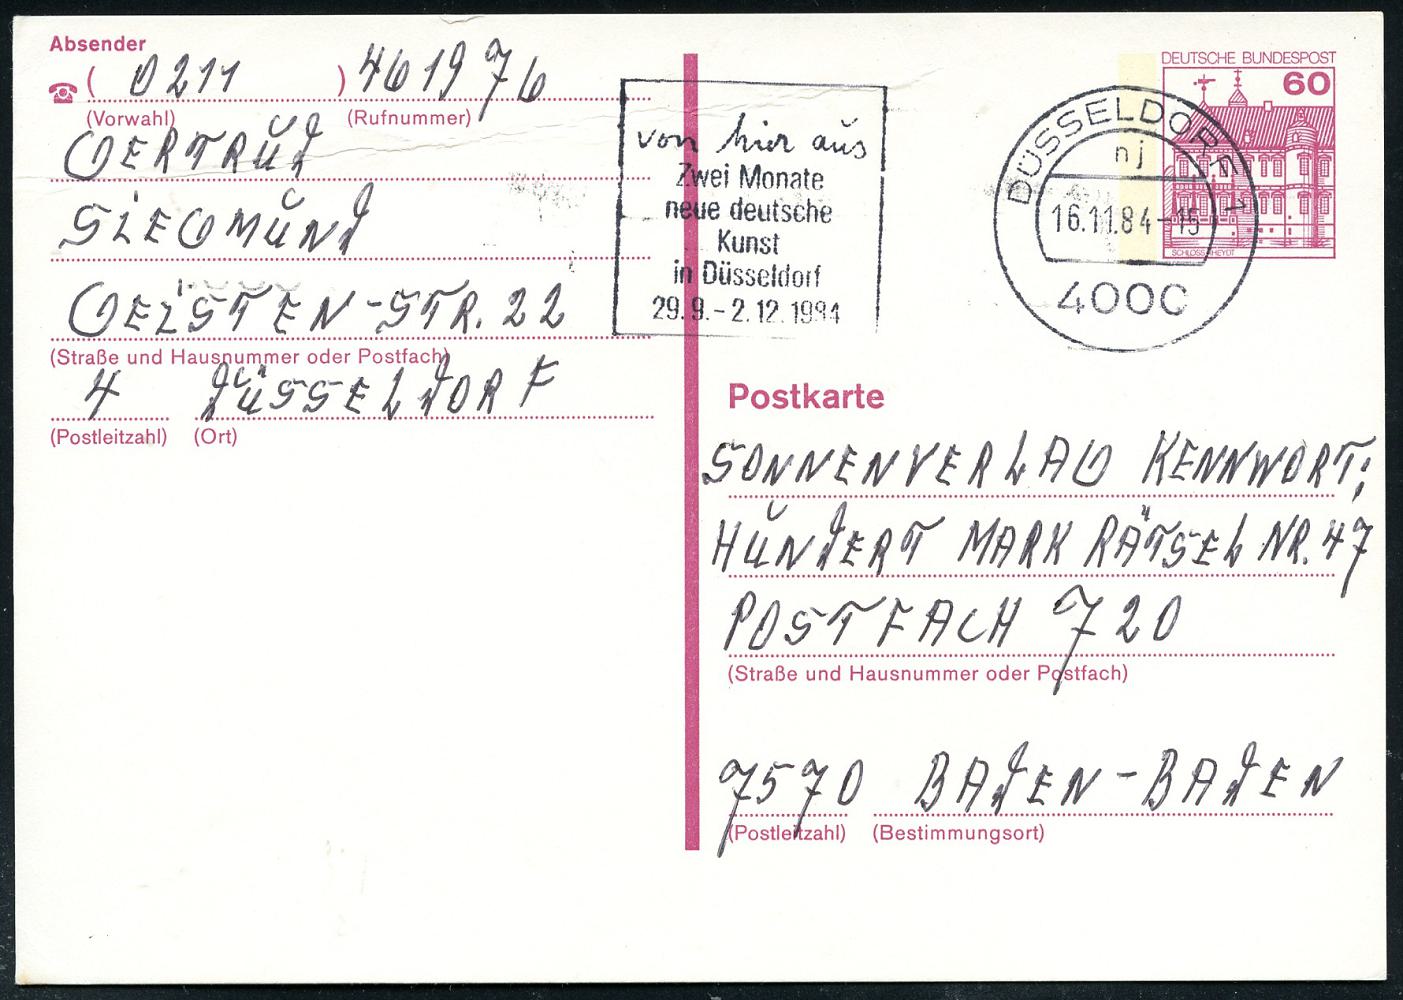 Absender
( 0211 ) 461976
(Vorwahl) (Rufnummer)
GERTRUD
SIEGMUND
GEISTEN-STR. 22
(Straße und Hausnummer oder Postfach)
4 DÜSSELDORF
(Postleitzahl) (Ort)
von hier aus
Zwei Monate
neue deutsche
Kunst
in Düsseldorf
29.9.-2.12.1984
DÜSSELDORF 1
nj
16.11.84-15
4000
DEUTSCHE BUNDESPOST
60
SCHLOSS RHEYDT
Postkarte
SONNENVERLAG KENNWORT:
HUNDERT MARK RÄTSEL NR. 47
POSTFACH 720
(Straße und Hausnummer oder Postfach)
7570 BADEN-BADEN
(Postleitzahl) (Bestimmungsort)